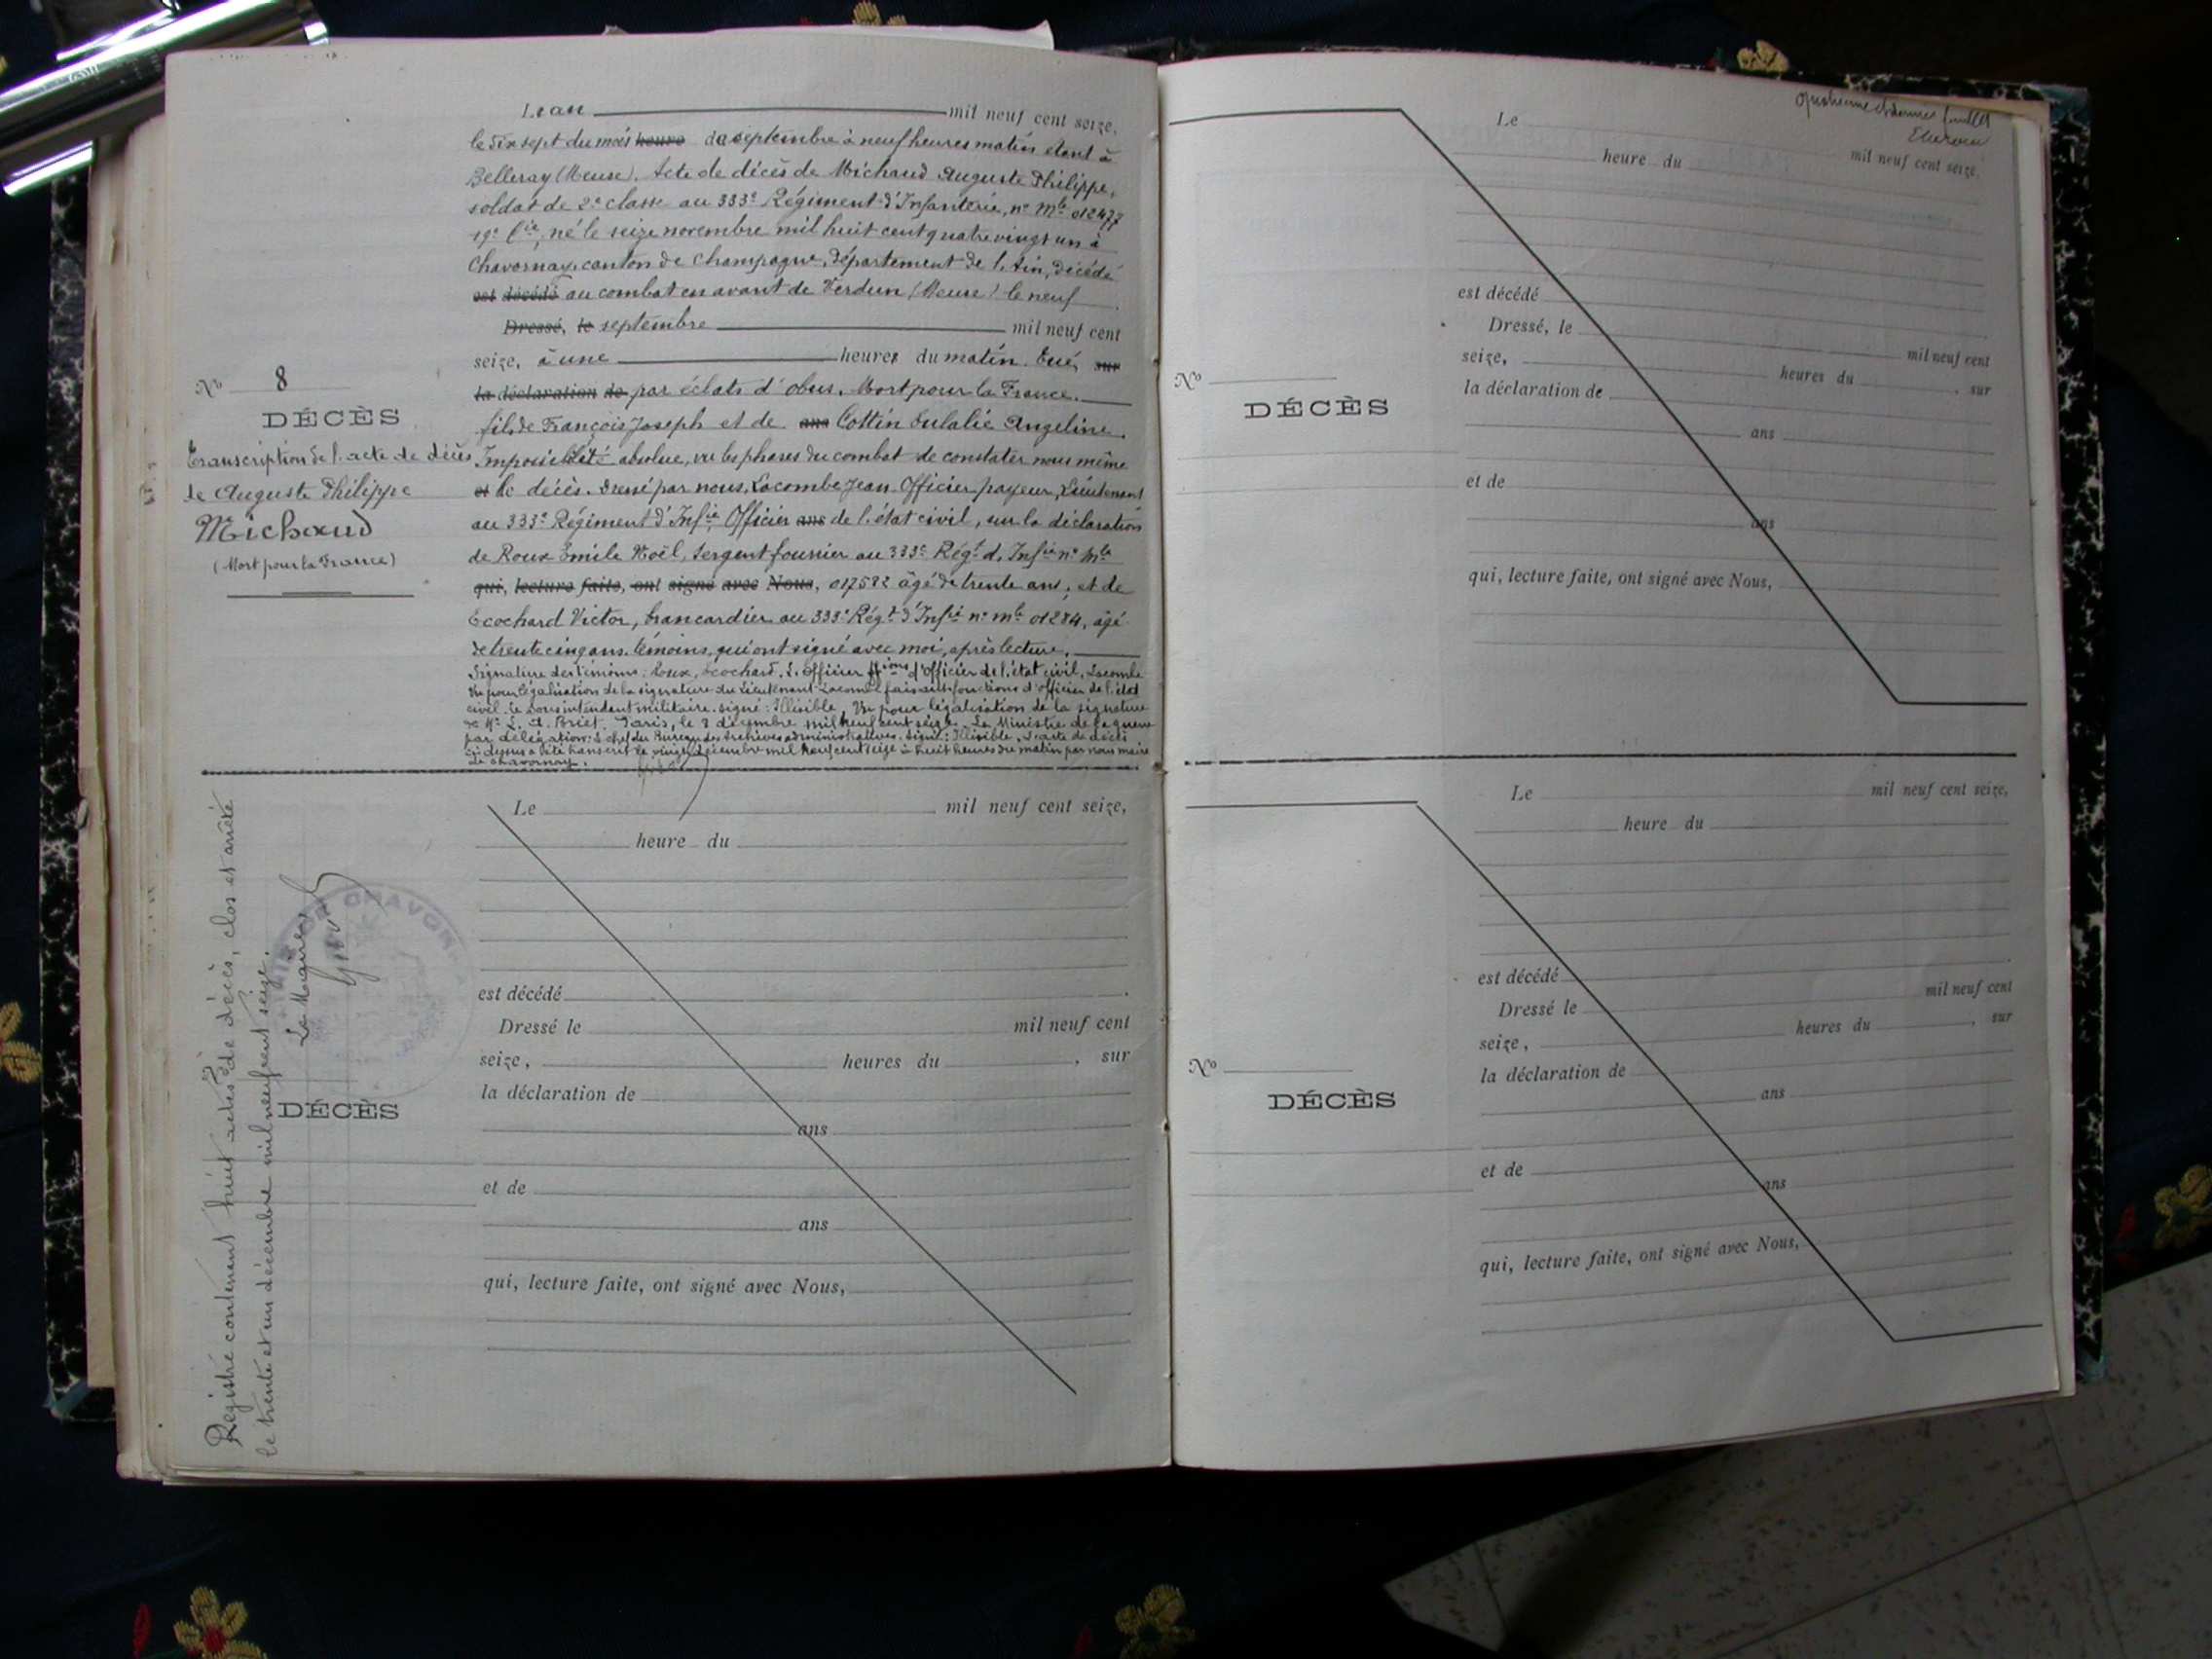 L'an mil neuf cent seize,
le dix sept du mois heure de septembre à neuf heures matin étant à
Belleray (Meuse). Acte de décès de Michaud Auguste Philippe,
soldat de 2e classe au 333e Régiment d'Infanterie, no Mle 012477
19e Cie, né le seize novembre mil huit cent quatre vingt un à
Chavornay, canton de Champagne, département de l'Ain, décédé
est décédé au combat en avant de Verdun (Meuse) le neuf
Dressé, le septembre mil neuf cent
seize, à une heures du matin. Tué, sur
la déclaration de par éclats d'obus. Mort pour la France.
fils de François Joseph et de ans Cottin Eulalie Angeline.
Impossibilité absolue, vu les phases du combat de constater nous même
et le décès. Dressé par nous, Lacombe Jean Officier payeur, Lieutenant
au 333e Régiment d'Infie Officier ans de l'état civil, sur la déclaration
de Roux Emile Noël, Sergent fourrier au 333e Régt d'Infie no Mle
qui, lecture faite, ont signé avec Nous, 017582 âgé de trente ans, et de
Ecochard Victor, brancardier au 333e Régt d'Infie no mle 01284, âgé
de trente cinq ans. témoins, qui ont signé avec moi, après lecture.
Signature des témoins: Roux, Ecochard. L'Officier ffions d'Officier de l'état civil, Lacombe
Vu pour légalisation de la signature du Lieutenant Lacombe faisant fonctions d'officier de l'état
civil. le Sous intendant militaire. signé: Illisible. Vu pour légalisation de la signature
de Mr L. A. Briet. Paris, le 8 décembre mil neuf cent seize. Le Ministre de la guerre
par délégation: L'chef du Bureau des Archives administratives. signé: Illisible. L'acte de décès
ci-dessus a été transcrit le vingt décembre mil neuf cent seize à huit heures du matin par nous maire
de Chavornay.
No 8
DÉCÈS
Transcription de l'acte de décès
de Auguste Philippe
Michaud
(Mort pour la France)
Registre contenant huit actes de décès, clos et arrêté
le trente et un décembre mil neuf cent seize.
Le Maire
DE CHAVORN
DÉCÈS
Le mil neuf cent seize,
heure du
est décédé
Dressé le mil neuf cent
seize, heures du , sur
la déclaration de
ans
et de
ans
qui, lecture faite, ont signé avec Nous,
feuillet
Le mil neuf cent seize,
heure du
est décédé
Dressé, le mil neuf cent
seize, heures du , sur
No
DÉCÈS
la déclaration de
ans
et de
ans
qui, lecture faite, ont signé avec Nous,
Le mil neuf cent seize,
heure du
est décédé
Dressé le mil neuf cent
seize, heures du , sur
No
DÉCÈS
la déclaration de
ans
et de
ans
qui, lecture faite, ont signé avec Nous,